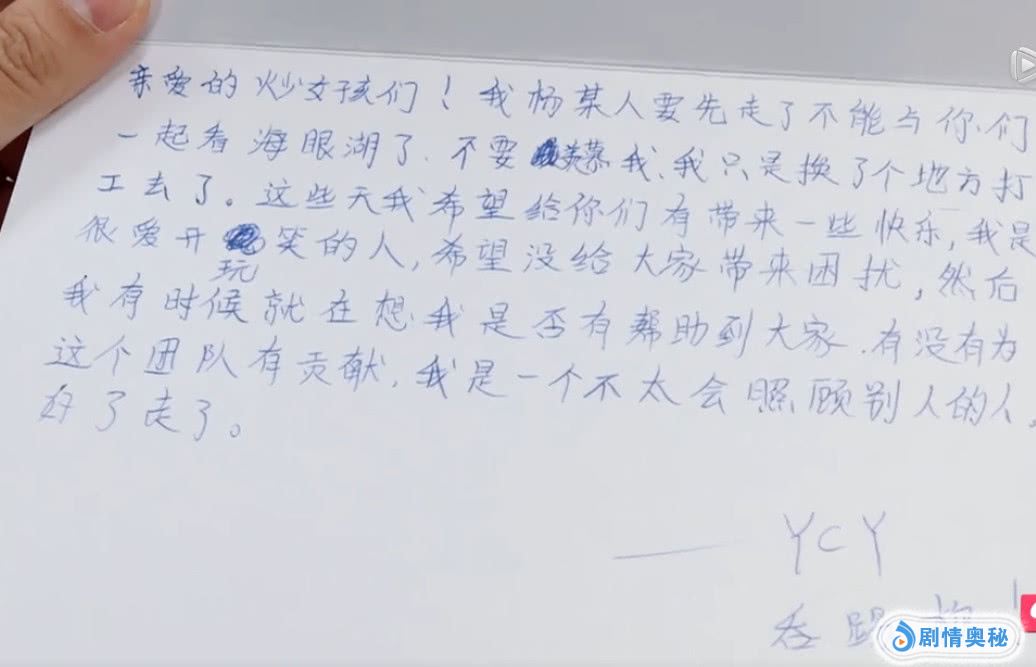 亲爱的炒女孩们！我杨某人要先走了不能与你们
一起看海眼湖了.不要羡慕我、我只是换了个地方打
工去了。这些天我希望给你们有带来一些快乐,我是
很爱开玩笑的人,希望没给大家带来困扰,然后
我有时候就在想.我是否有帮助到大家.有没有为
这个团队有贡献.我是一个不太会照顾别人的人。
好了走了。
—— YCY
剧情奥秘